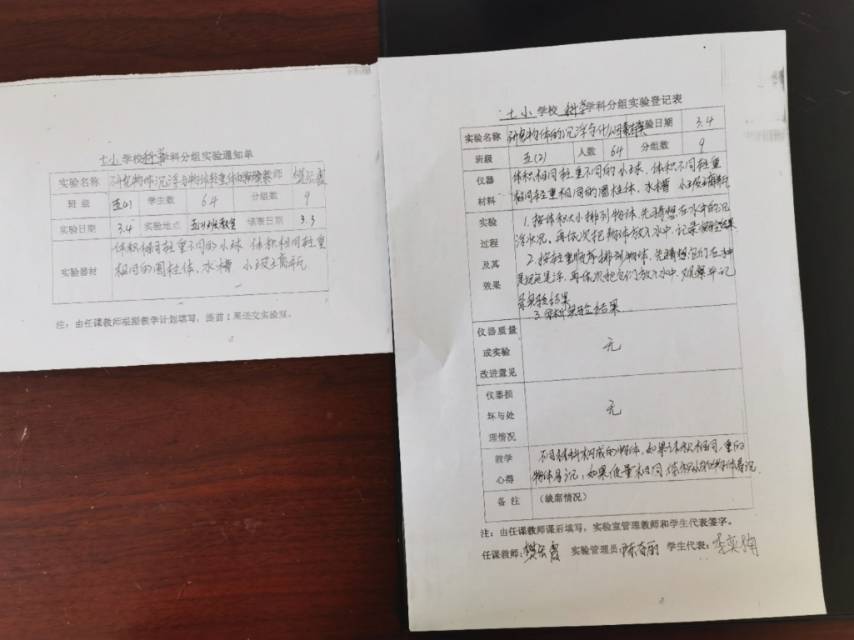 土小学校科学学科分组实验通知单
实验名称 研究物体沉浮与物体轻重体积 教师 樊云霞
班 级 五(2) 学生数 64 分组数 9
实验日期 3.4 实验地点 教室 填表日期 3.3
实验器材 轻重不同的小球 体积相同轻重
相同的圆柱体、水槽 小玻璃瓶
注：由任课教师根据教学计划填写，提前1周送交实验室。
土小学校科学学科分组实验登记表
实验名称 研究物体的沉浮与什么因素有关 实验日期 3.4
班级 五(2) 人数 64 分组数 9
仪器 体积相同轻重不同的小球、体积不同轻重
材料 相同的圆柱体、水槽 小玻璃瓶
实验 1.按体积大小排列物体,先猜想在水中的沉
过程 浮状况,再依次把物体放入水中,记录
及其 2.按轻重顺序排列物体,先猜想它们在水中
效果 是沉是浮,再依次把它们放入水中,观察并记
录实验结果
3. 实验结果
仪器质量
或实验 无
改进意见
仪器损
坏与处 无
理情况
教学 不同材料构成的物体,如果体积相同,重的
心得 物体易沉,如果质量相同,体积小的物体易沉
备 注 (缺席情况)
注：由任课教师课后填写，实验室管理教师和学生代表签字。
任课教师：樊云霞 实验管理员： 学生代表：